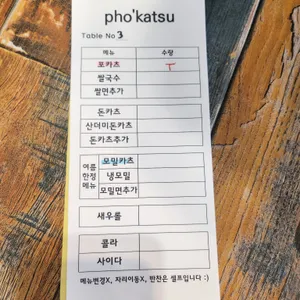 pho'katsu
Table No 3
메뉴 수량
포카츠 T
쌀국수
쌀면추가
돈카츠
산더미돈카츠
돈카츠추가
여름한정메뉴
모밀카츠
냉모밀
모밀면추가
새우롤
콜라
사이다
메뉴변경X, 자리이동X, 반찬은 셀프입니다 :)